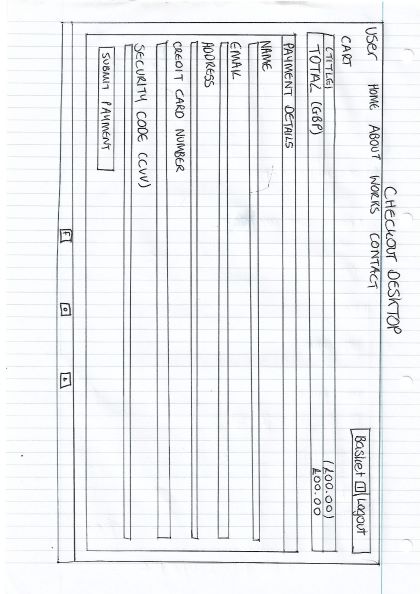 CHECKOUT DESKTOP
User HOME ABOUT WORKS CONTACT
Basket 1 Logout
CART
(TITLE) (£00.00)
TOTAL (GBP) £00.00
PAYMENT DETAILS
NAME
EMAIL
ADDRESS
CREDIT CARD NUMBER
SECURITY CODE (CVV)
SUBMIT PAYMENT